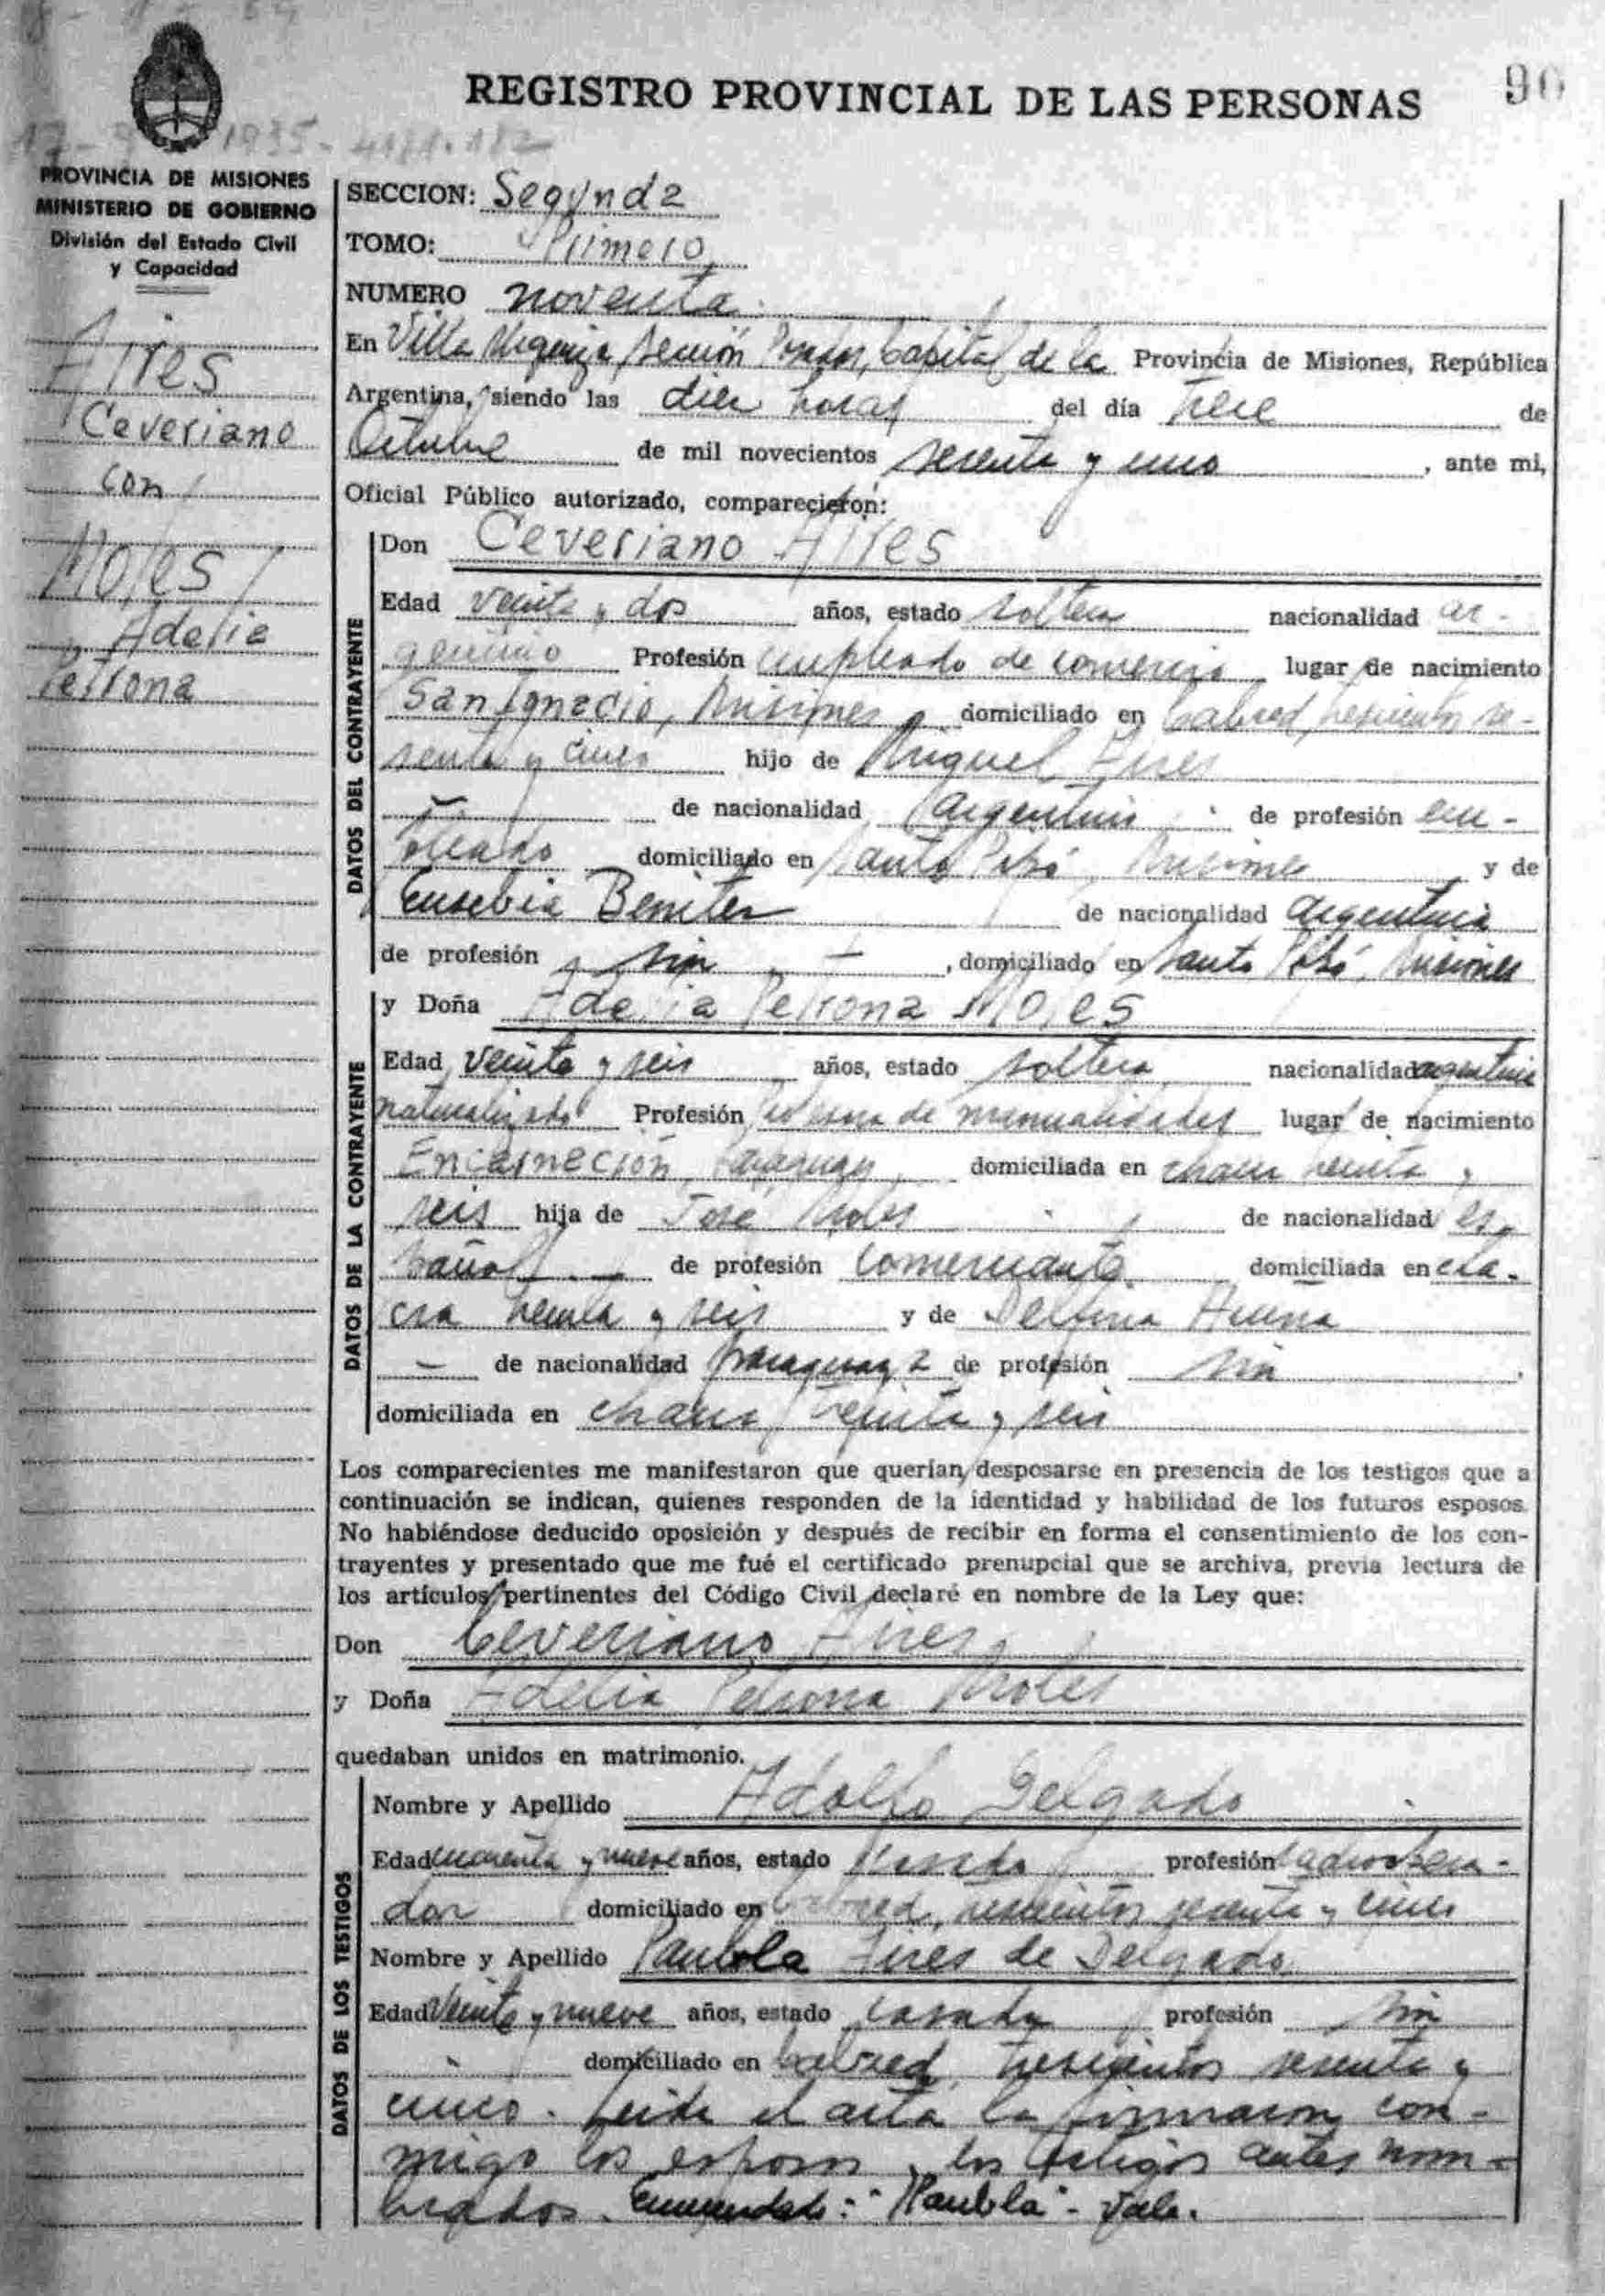 90
REGISTRO PROVINCIAL DE LAS PERSONAS
PROVINCIA DE MISIONES
MINISTERIO DE GOBIERNO
División del Estado Civil
y Capacidad
Aires
Ceveriano
con
Moles
Adelia
Petrona
SECCION: Segunda
TOMO: Primero
NUMERO noventa
En Villa Urquiza, sección Posadas, Capital de la Provincia de Misiones, República
Argentina, siendo las diez horas del día trece de
Octubre de mil novecientos sesenta y uno, ante mi,
Oficial Público autorizado, comparecieron:
DATOS DEL CONTRAYENTE
Don Ceveriano Aires
Edad veinte y dos años, estado soltero nacionalidad ar-
gentino Profesión empleado de comercio lugar de nacimiento
San Ignacio, Misiones domiciliado en Cabred, trescientos se-
senta y cinco hijo de Miguel Aires
de nacionalidad argentino de profesión em-
pleado domiciliado en Santo Pipó, Misiones y de
Eusebia Benitez de nacionalidad argentina
de profesión sin, domiciliado en Santo Pipó, Misiones
DATOS DE LA CONTRAYENTE
y Doña Adelia Petrona Moles
Edad veinte y seis años, estado soltera nacionalidad argentina
naturalizada Profesión profesora de manualidades lugar de nacimiento
Encarnación, Paraguay, domiciliada en chacra treinta y
seis hija de José Moles de nacionalidad es-
pañol de profesión comerciante domiciliada en cha-
cra treinta y seis y de Delfina Acuña
de nacionalidad paraguaya de profesión sin
domiciliada en chacra treinta y seis
Los comparecientes me manifestaron que querían desposarse en presencia de los testigos que a
continuación se indican, quienes responden de la identidad y habilidad de los futuros esposos.
No habiéndose deducido oposición y después de recibir en forma el consentimiento de los con-
trayentes y presentado que me fué el certificado prenupcial que se archiva, previa lectura de
los artículos pertinentes del Código Civil declaré en nombre de la Ley que:
Don Ceveriano Aires
y Doña Adelia Petrona Moles
quedaban unidos en matrimonio.
DATOS DE LOS TESTIGOS
Nombre y Apellido Adolfo Delgado
Edad cuarenta y nueve años, estado casado profesión
dor domiciliado en Cabred, trescientos sesenta y cinco
Nombre y Apellido Paubla Aires de Delgado
Edad veinte y nueve años, estado casada profesión sin
domiciliado en Cabred, trescientos sesenta y
cinco. Leida el acta la firmaron con-
migo los esposos y los testigos antes nom-
brados. Enmendado: "Paubla" - Vale.